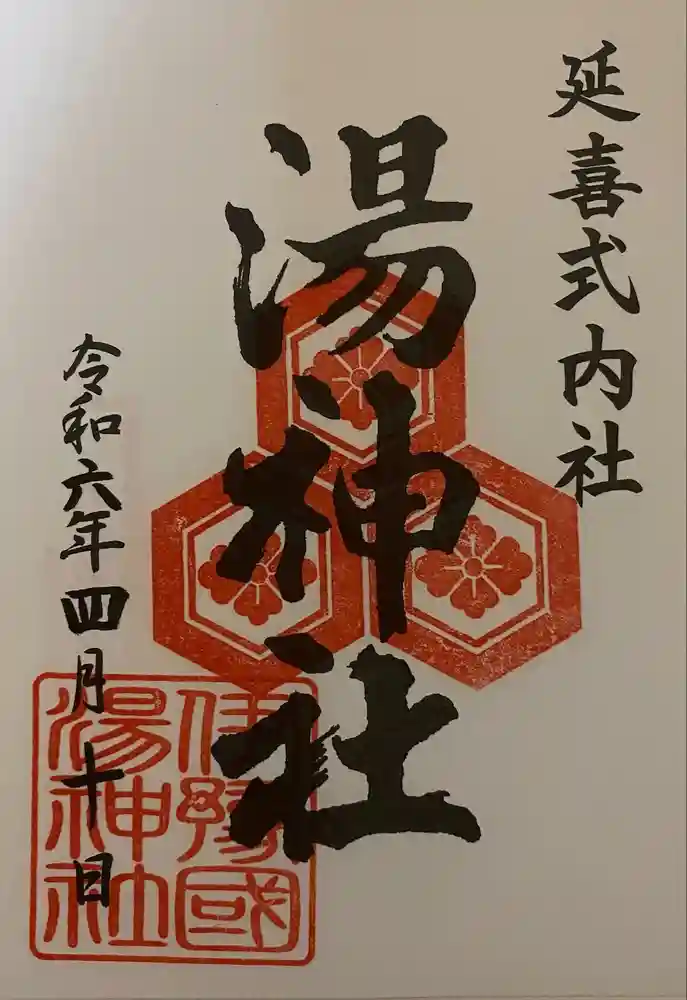 延喜式内社
湯神社
令和六年四月十日
伊豫國
湯神社